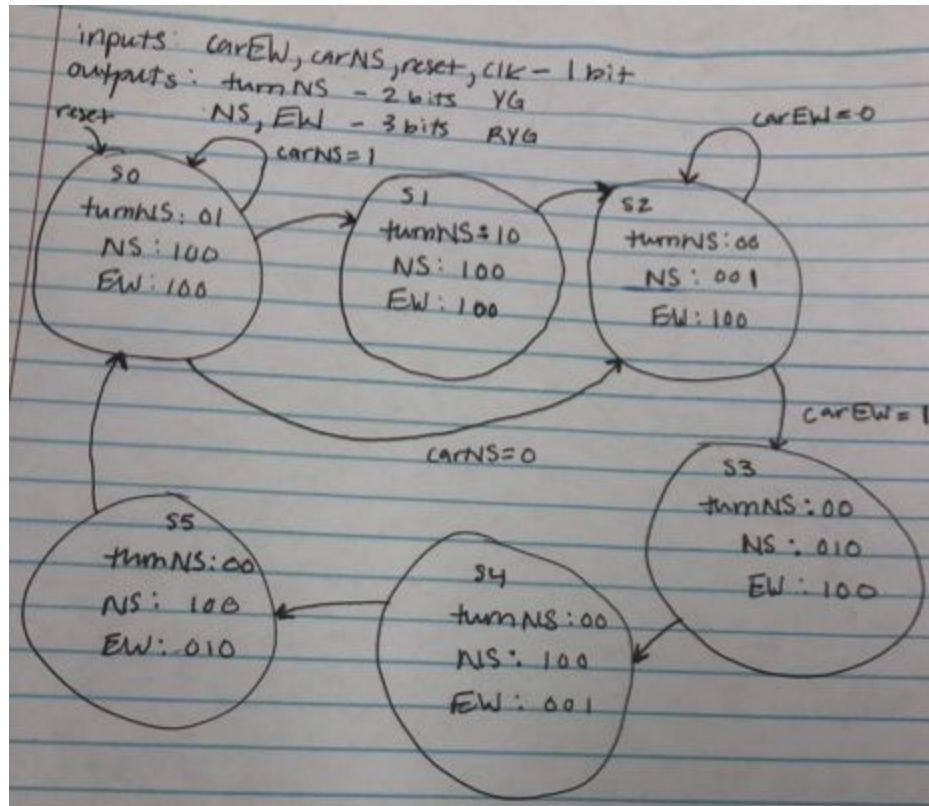 inputs: carEW, carNS, reset, clk - 1 bit
outputs: turnNS - 2 bits YG
NS, EW - 3 bits RYG
reset
carNS = 1
carEW = 0
S0
turnNS: 01
NS: 100
EW: 100
S1
turnNS: 10
NS: 100
EW: 100
S2
turnNS: 00
NS: 001
EW: 100
carEW = 1
carNS=0
S3
turnNS: 00
NS: 010
EW: 100
S4
turnNS: 00
NS: 100
EW: 001
S5
turnNS: 00
NS: 100
EW: 010